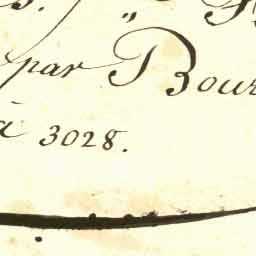 par Bour
à 3028.